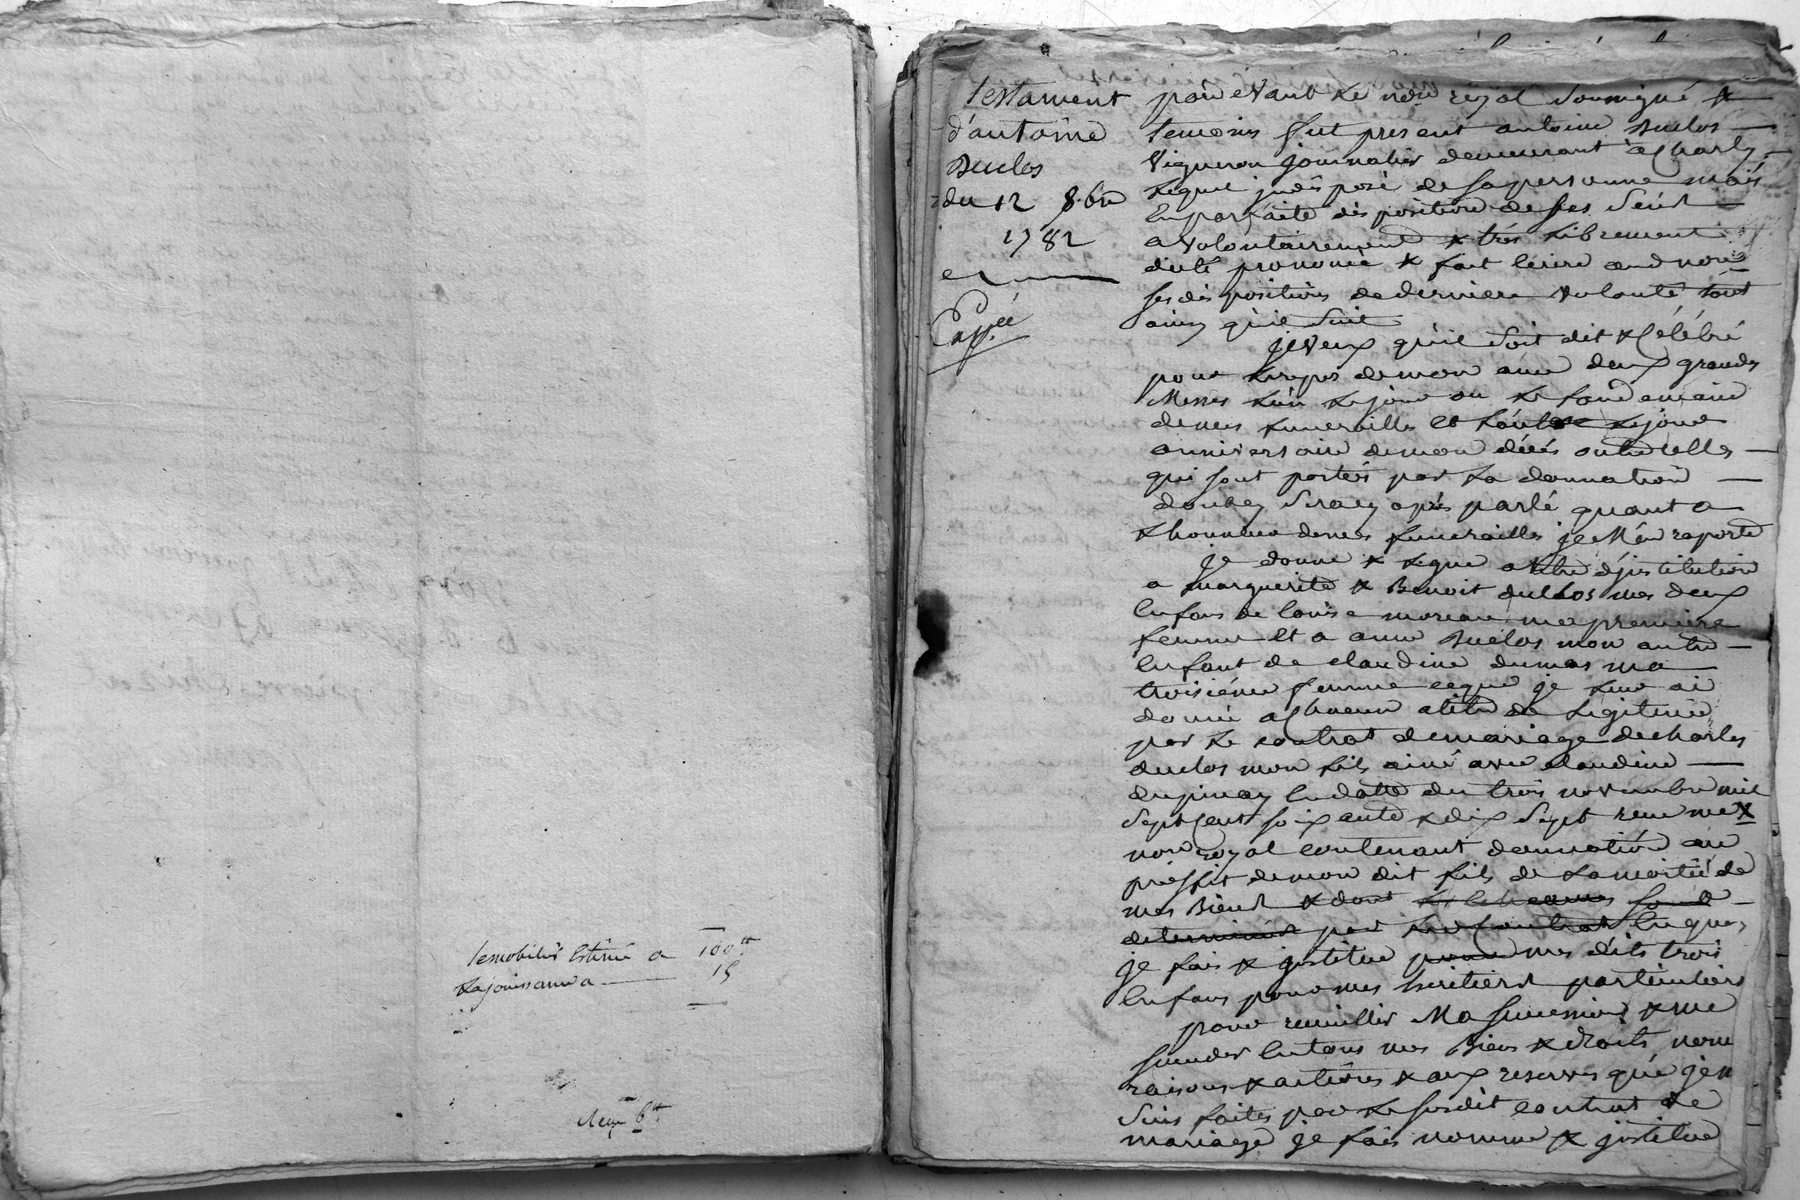 le mobilier Estimé a 100tt
La jouissance a 15
Reçu 6tt
Testament
d'antoine
Duclos
du 12 8bre
1782
Expée
pardevant Le nore royal soussigné &
temoins fut present antoine Duclos
Vigneron journalier demeurant a Charly
Lequel indisposé de sa personne mais
En parfaite disposition de ses sens
a volontairement & très Librement
dicté prononcé & fait Ecrire aud nore
ses dispositions de derniere volonté tout
ainsy qu'il suit
je veux qu'il soit dit & Célébré
pour Le repos de mon ame deux grandes
Messes L'un Le jour ou Le landemain
de mes funerailles et L'autre Le jour
anniversaire de mon décés outre celles
qui sont portées par La donnation
dont il sera cy après parlé quant a
L'honneur de mes funerailles je M'en raporte
je donne & Legue a titre d'institution
a marguerite & Benoit duclos mes deux
Enfans de Louise moreau ma premiere
femme et a anne Duclos mon autre
Enfant de claudine dumas ma
troisième femme ce que je Leur ai
donné a Chacun a titre de Legitime
par Le contrat de mariage de charles
duclos mon fils ainé avec claudine
dupinay En datte du trois novembre mil
sept Cent soixante & dix sept reçu me
nore royal contenant donnation au
proffit de mon dit fils de La moitié de
mes Biens & dont
determinés par Le Contrat En quoy
je fais & institue mes dits trois
Enfans pour mes heritiers particuliers
pour recueillir Ma succession & me
succeder En tous mes Biens & droits noms
raisons & actions & aux reserves que je m
suis faites par Le susdit contrat de
mariage je fais nomme & institue